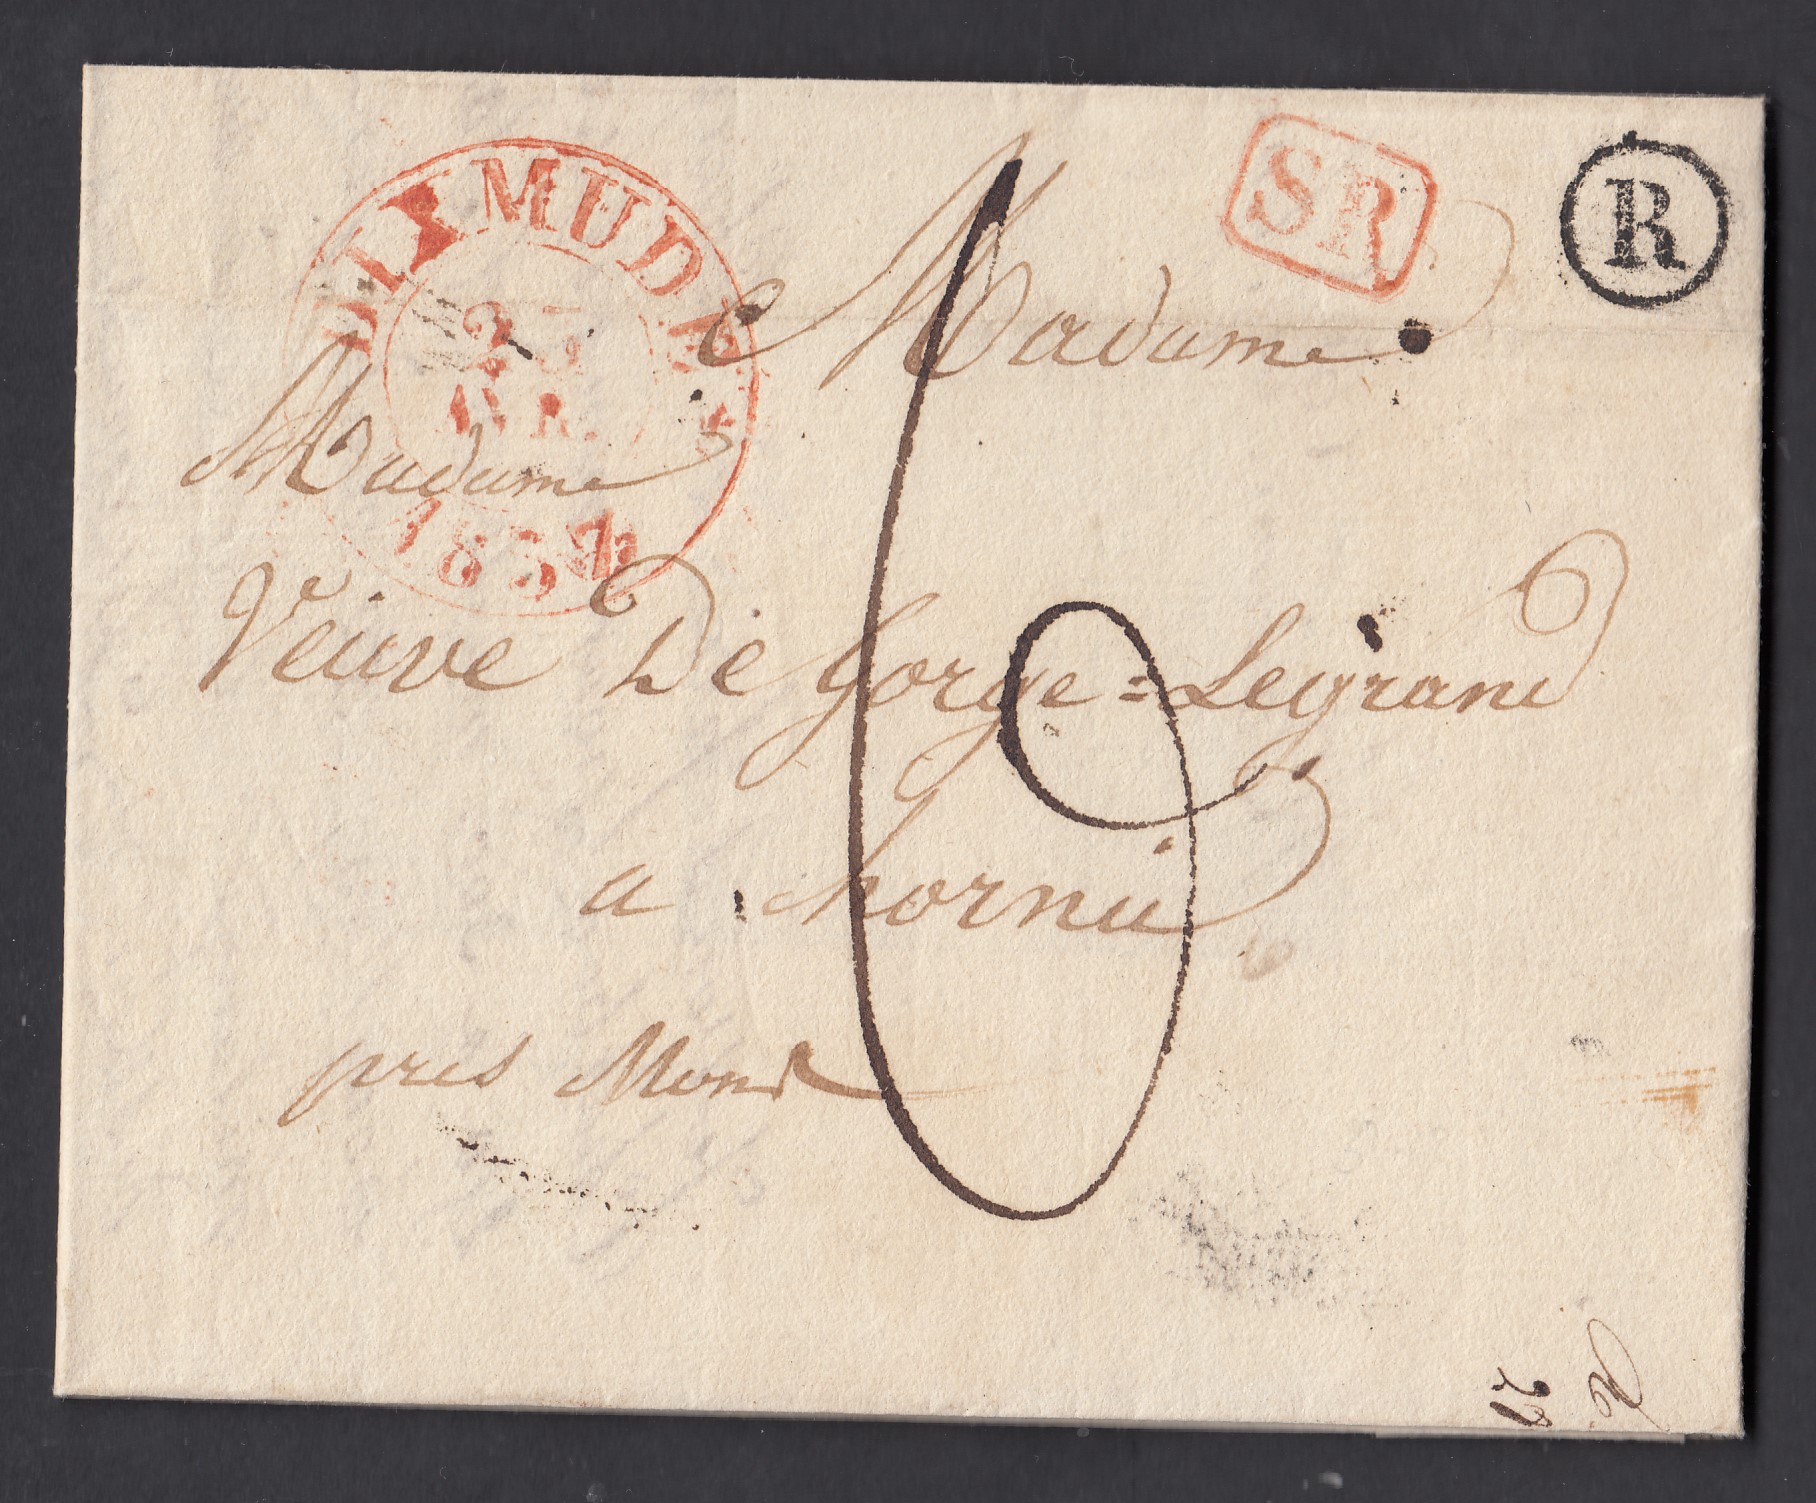 DIXMUDE
SR
R
AVR.
Madame
Madame
Veuve De Gorge=Legrand
a hornu
près Mons
6
27